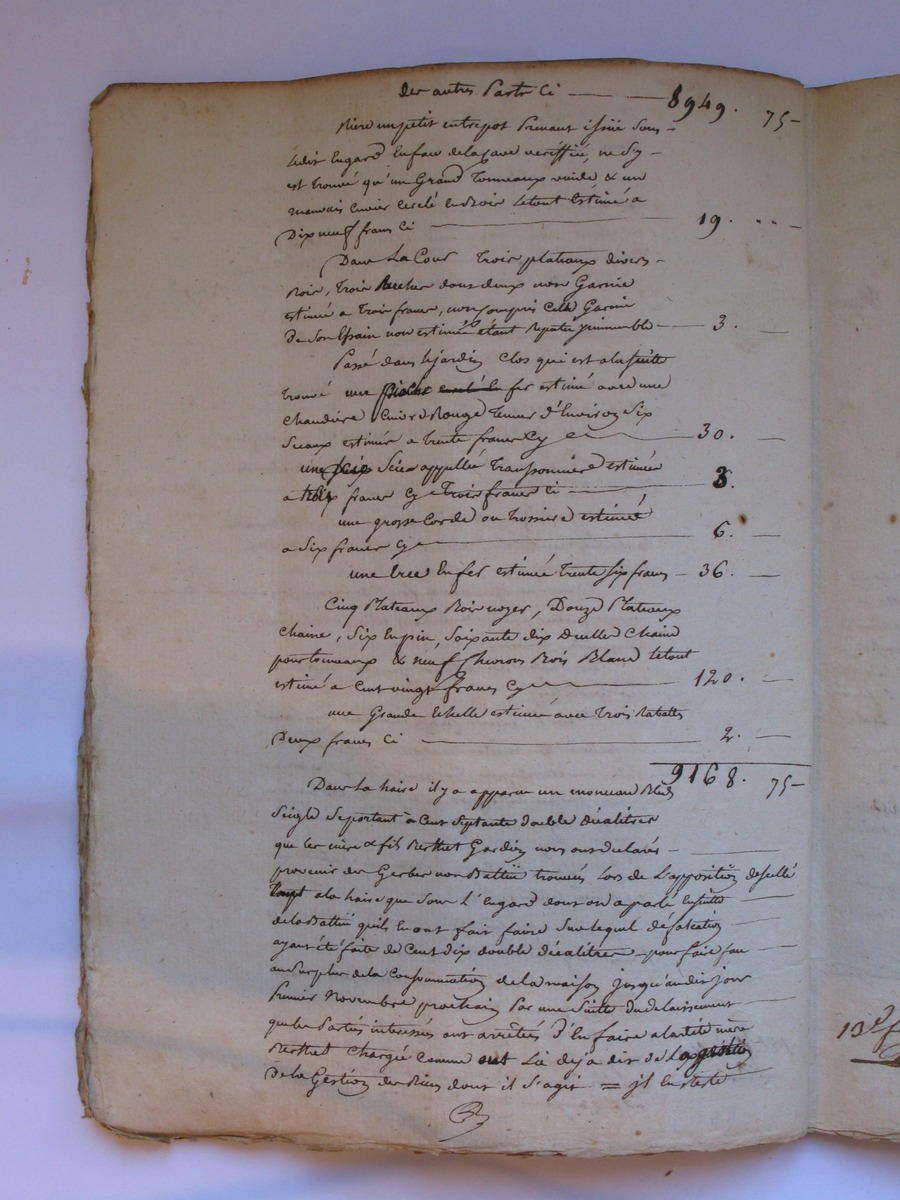 des autres Parts Ci — 8949. 75–
un petit entrepot Prenant issüe Sous –
Ledit Engard En face de la Cave veriffiée, ne Sy –
est trouvé qu'un Grand Tonneaux vuide & un
mauvais Cuvier Cerclé En Bois Le tout Estimé a
Dix neuf francs Ci — 19. " " –
Dans La Cour Trois plateaux divers –
Bois, Trois Rucher dont deux non Garnie
estimé a Trois francs, non compris Celle Garnie
de Son Essain non estimée étant Reputée immeuble — 3. —
Passé dans le jardin Clos qui est a la suitte
trouvé une pioche en fer estimé avec une
chaudière Cuivre Rouge Tenant d'Environ Six
Seaux estimés a trente francs Cy — 30. —
une Scie appellée Transponnière estimée
a trois francs Cy Trois francs Ci — 3.
une grosse Corde ou Trossiere estimée
a Six francs Cy — 6. —
une En fer estimée trente six francs – 36. —
Cinq Plateaux Bois noyer, Douze Plateaux
chaine, Six En pin, Soixante dix duelle Chaine
pour tonneaux & neuf Chevrons Bois Blanc le tout
estimé a Cent vingt francs Cy — 120. —
une Grande Echelle estimée avec Trois Rabatts
Deux francs Ci — 2. —
9168. 75–
Dans La haire il y a apparu un monceau Bled
Seigle Se portant a Cent Septante double décalitres
que les mère & fils Berthet Gardien nous ont declarés –
provenir des Gerbes non Battüe trouvés Lors de L'apposition de scellé
a la haire que Sous L'Engard dont on a parlé Ensuitte
de la Battüe qu'ils En ont fait faire Sur lequel défalcation
ayant été faite de Cent dix double décalitres pour faire face
au Surplus de la Consommation de la maison jusqu'au dix jour
Premier Novembre prochain Par une Suitte du delaissement
que les Parties interessées ont arrêtées d'En faire a la dite mère
Berthet Chargée Comme Lé déja dit de La
de la Gestion des Biens dont il S'agit = jl En Reste